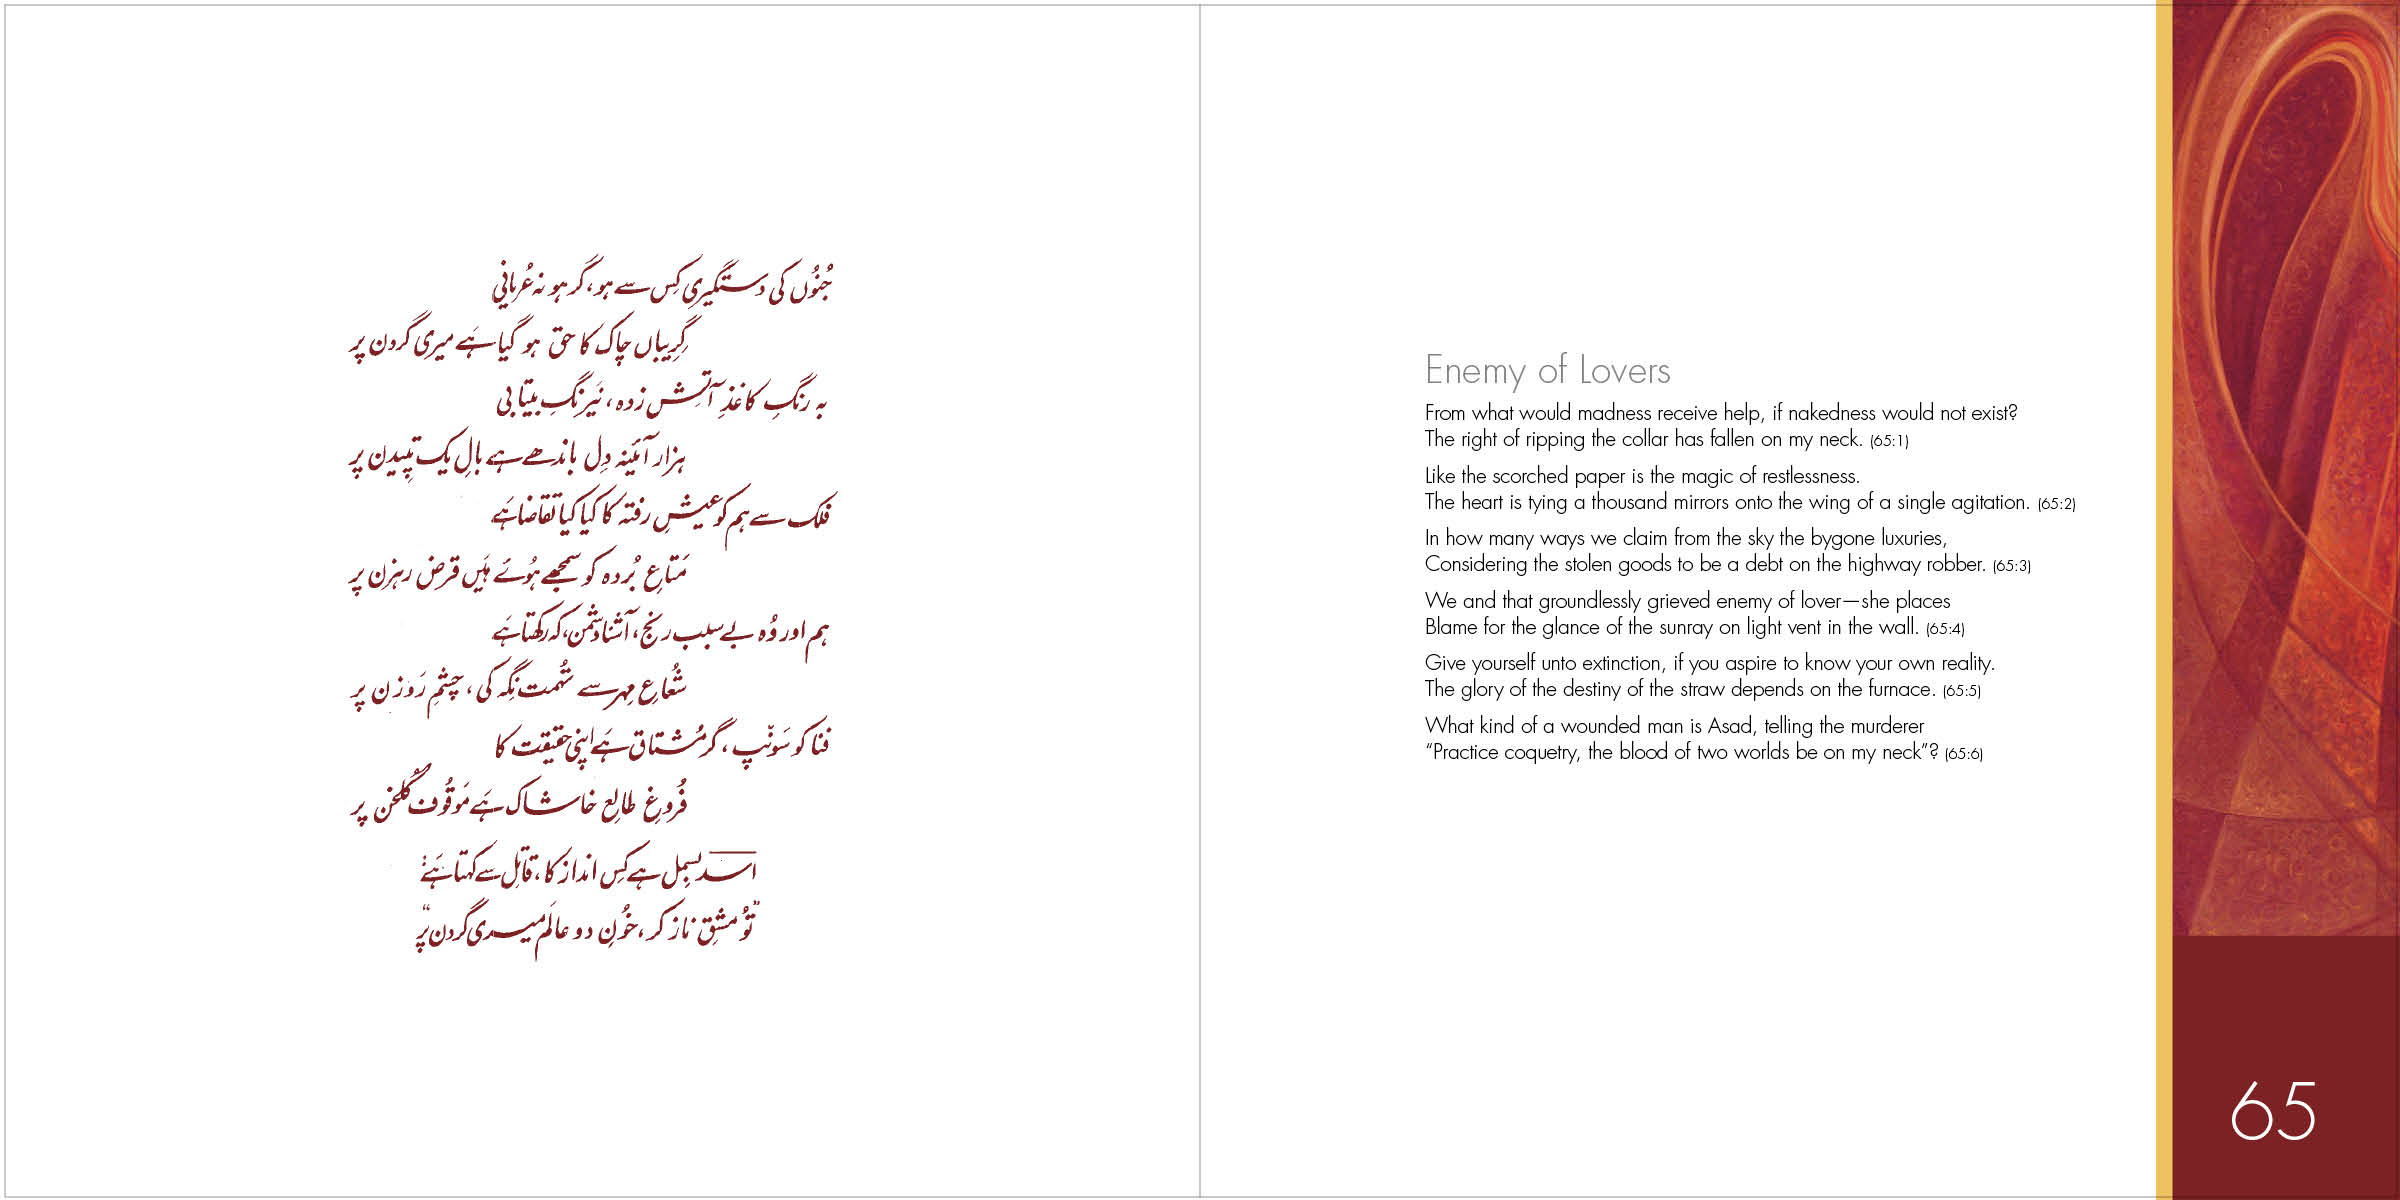 جُنُوں کی دستگیری کِس سے ہو، گر ہو نہ عُریانی
گرِیباں چاک کا حق ہو گیا ہَے میری گردن پر
بہ رنگِ کاغذِ آتش زدہ، نَیرنگِ بیتابی
ہزار آئینہ دِل باندھے ہے بالِ یک تپِیدن پر
فلک سے ہم کو عیشِ رفتہ کا کیا کیا تقاضا ہَے
مَتاعِ بُردہ کو سمجھے ہُوئے ہَیں قرض رہزن پر
ہم اور وُہ بے سبب رنج، آشنا دشمن، کہ رکھتا ہَے
شُعاعِ مِہر سے تُہمت نِگہ کی، چشمِ رَوزن پر
فنا کو سَونپ، گر مُشتاق ہَے اپنی حقیقت کا
فُروغِ طالعِ خاشاک ہَے مَوقُوف گُلخن پر
اسد بسمِل ہے کِس انداز کا، قاتِل سے کہتا ہَے:
”تُو مشقِ ناز کر، خُونِ دو عالَم میری گردن پر“
Enemy of Lovers
From what would madness receive help, if nakedness would not exist?
The right of ripping the collar has fallen on my neck. (65:1)
Like the scorched paper is the magic of restlessness.
The heart is tying a thousand mirrors onto the wing of a single agitation. (65:2)
In how many ways we claim from the sky the bygone luxuries,
Considering the stolen goods to be a debt on the highway robber. (65:3)
We and that groundlessly grieved enemy of lover—she places
Blame for the glance of the sunray on light vent in the wall. (65:4)
Give yourself unto extinction, if you aspire to know your own reality.
The glory of the destiny of the straw depends on the furnace. (65:5)
What kind of a wounded man is Asad, telling the murderer
“Practice coquetry, the blood of two worlds be on my neck”? (65:6)
65